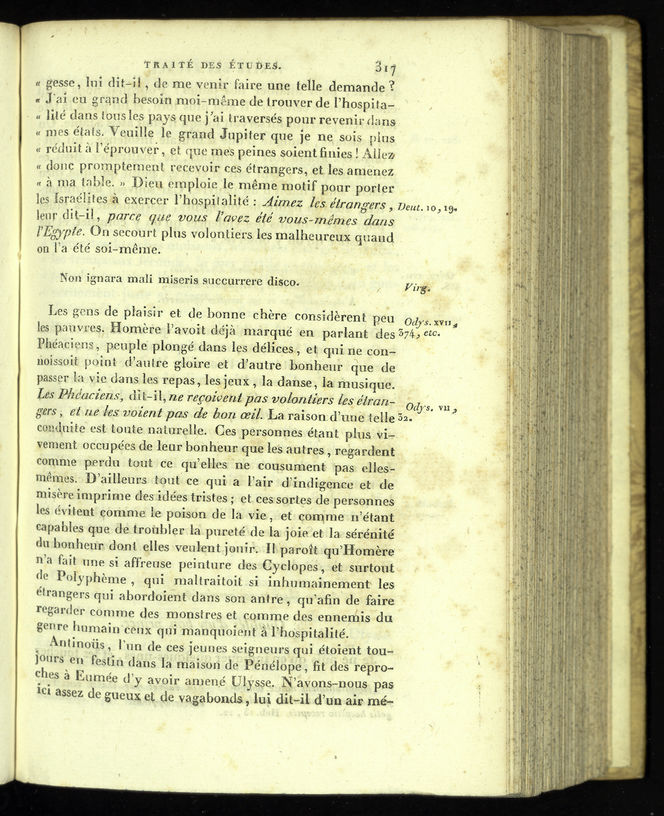 TRAITÉ DES ÉTUDES. 317
« gesse, lui dit-il, de me venir faire une telle demande ?
« J'ai eu grand besoin moi-même de trouver de l'hospita-
« lité dans tous les pays que j'ai traversés pour revenir dans
« mes états. Veuille le grand Jupiter que je ne sois plus
« réduit à l'éprouver, et que mes peines soient finies ! Allez
« donc promptement recevoir ces étrangers, et les amenez
« à ma table. » Dieu emploie le même motif pour porter
les Israélites à exercer l'hospitalité : Aimez les étrangers, Deut. 10, 19.
leur dit-il, parce que vous l'avez été vous-mêmes dans
l'Egypte. On secourt plus volontiers les malheureux quand
on l'a été soi-même.
Non ignara mali miseris succurrere disco. Virg.
Les gens de plaisir et de bonne chère considèrent peu Odys. XVII,
les pauvres. Homère l'avoit déjà marqué en parlant des 374, etc.
Phéaciens, peuple plongé dans les délices, et qui ne con-
noissoit point d'autre gloire et d'autre bonheur que de
passer la vie dans les repas, les jeux, la danse, la musique.
Les Phéaciens, dit-il, ne reçoivent pas volontiers les étran-
gers, et ne les voient pas de bon œil. La raison d'une telle Odys. VII, 32.
conduite est toute naturelle. Ces personnes étant plus vi-
vement occupées de leur bonheur que les autres, regardent
comme perdu tout ce qu'elles ne consument pas elles-
mêmes. D'ailleurs tout ce qui a l'air d'indigence et de
misère imprime des idées tristes ; et ces sortes de personnes
les évitent comme le poison de la vie, et comme n'étant
capables que de troubler la pureté de la joie et la sérénité
du bonheur dont elles veulent jouir. Il paroît qu'Homère
n'a fait une si affreuse peinture des Cyclopes, et surtout
de Polyphème, qui maltraitoit si inhumainement les
étrangers qui abordoient dans son antre, qu'afin de faire
regarder comme des monstres et comme des ennemis du
genre humain ceux qui manquoient à l'hospitalité.
Antinoüs, l'un de ces jeunes seigneurs qui étoient tou-
jours en festin dans la maison de Pénélope, fit des repro-
ches à Eumée d'y avoir amené Ulysse. N'avons-nous pas
ici assez de gueux et de vagabonds, lui dit-il d'un air mé-